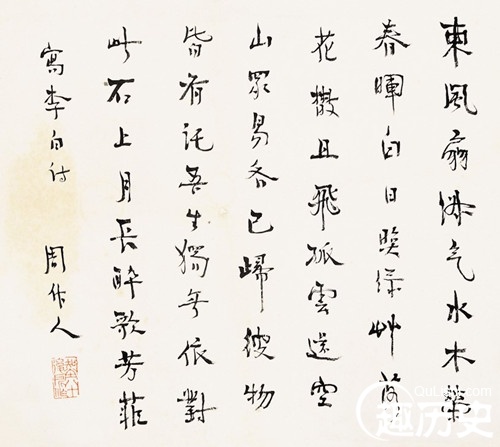 東風扇淑气水木榮
春暉白日照綠艸落
花散且飛孤雲還空
山眾鳥各已歸彼物
皆有託吾生獨無依對
此石上月長醉歌芳菲
寫李白詩 周作人
QuLishi.com
趣历史